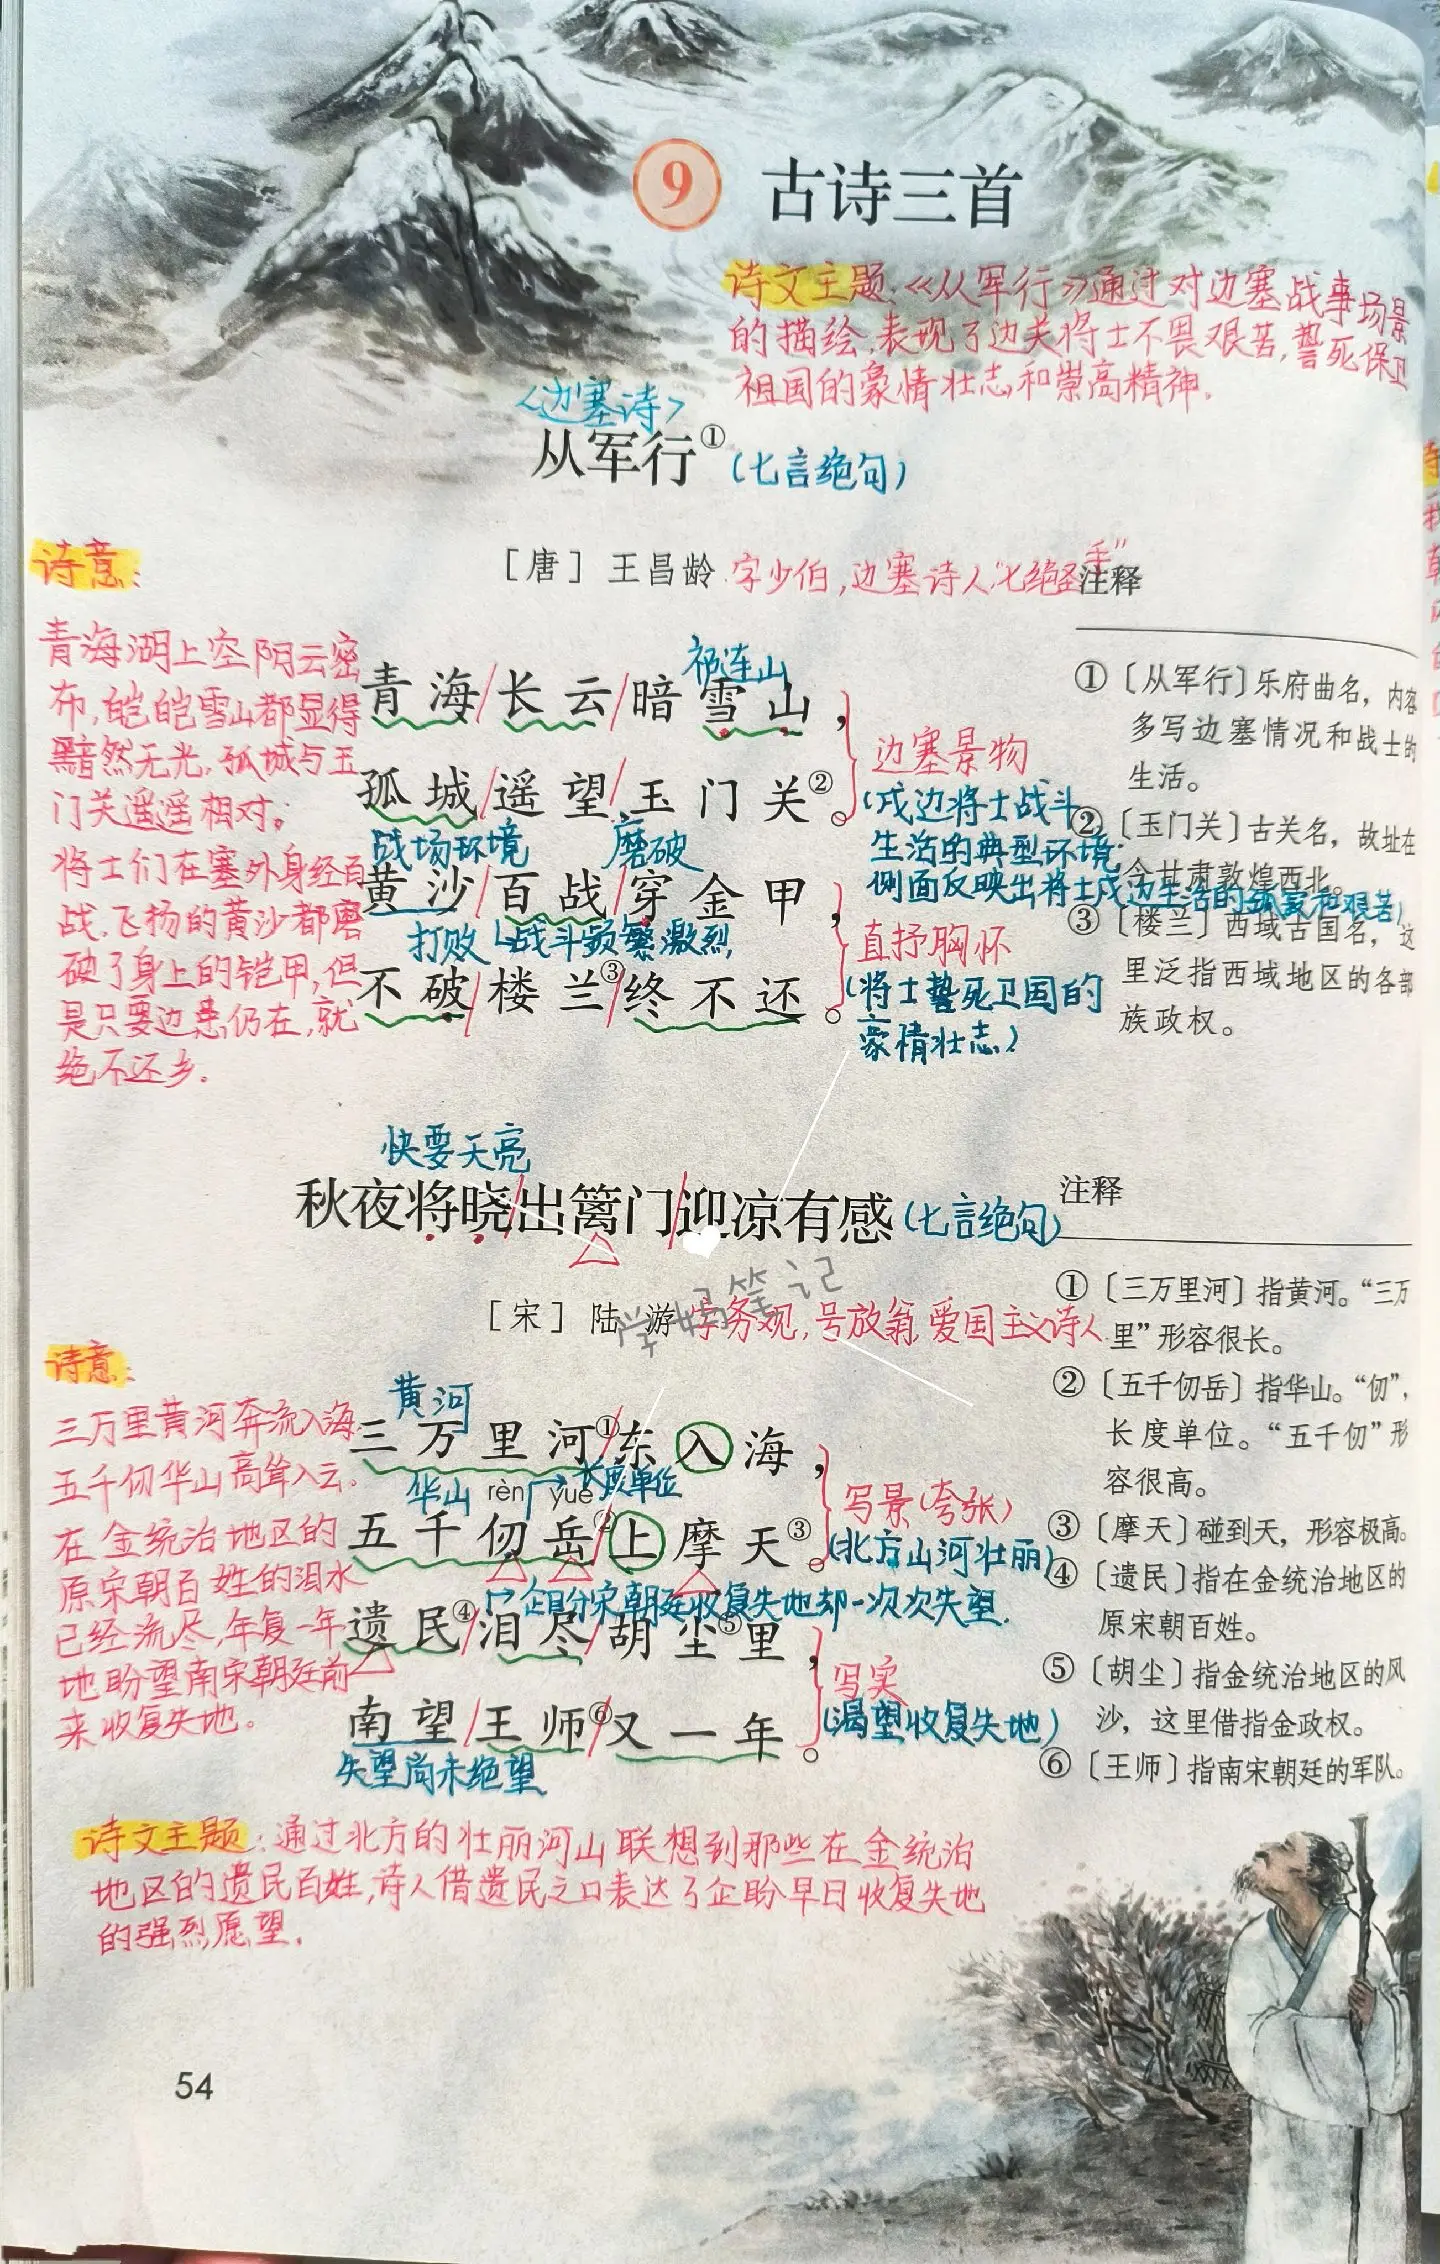 9 古诗三首
诗文主题:《从军行》通过对边塞战事场景
的描绘,表现了边关将士不畏艰苦,誓死保卫
祖国的豪情壮志和崇高精神.
<边塞诗>
从军行① (七言绝句)
[唐] 王昌龄 字少伯,边塞诗人,"七绝圣手"
诗意:
青海湖上空阴云密
布,皑皑雪山都显得
黯然无光.孤城与玉
门关遥遥相对。
将士们在塞外身经百
战,飞扬的黄沙都磨
破了身上的铠甲,但
是只要边患仍在,就
绝不还乡.
祁连山
青海/长云/暗雪山,
孤城/遥望/玉门关②。
战场环境 磨破
黄沙/百战/穿金甲,
打败 战斗频繁激烈
不破/楼兰③/终不还。
边塞景物
(戍边将士战斗
生活的典型环境.
侧面反映出将士戍边生活的孤寂和艰苦)
直抒胸怀
(将士誓死卫国的
豪情壮志)
注释
①〔从军行〕乐府曲名,内容
多写边塞情况和战士的
生活。
②〔玉门关〕古关名,故址在
今甘肃敦煌西北。
③〔楼兰〕西域古国名,这
里泛指西域地区的各部
族政权。
快要天亮
秋夜将晓/出篱门/迎凉有感 (七言绝句)
[宋] 陆游 字务观,号放翁,爱国主义诗人
学妈笔记
诗意:
三万里黄河奔流入海.
五千仞华山高耸入云.
在金统治地区的
原宋朝百姓的泪水
已经流尽,年复一年
地盼望南宋朝廷前
来收复失地。
黄河
三万里河①/东入海,
华山 rèn yuè 长度单位
五千仞岳②/上摩天③。
企盼宋朝廷收复失地却一次次失望.
遗民④/泪尽/胡尘⑤里,
南望/王师⑥/又一年。
失望尚未绝望
写景(夸张)
(北方山河壮丽)
写实
(渴望收复失地)
注释
①〔三万里河〕指黄河。“三万
里”形容很长。
②〔五千仞岳〕指华山。“仞”,
长度单位。“五千仞”形
容很高。
③〔摩天〕碰到天,形容极高。
④〔遗民〕指在金统治地区的
原宋朝百姓。
⑤〔胡尘〕指金统治地区的风
沙,这里借指金政权。
⑥〔王师〕指南宋朝廷的军队。
诗文主题:通过北方的壮丽河山联想到那些在金统治
地区的遗民百姓,诗人借遗民之口表达了企盼早日收复失地
的强烈愿望.
54